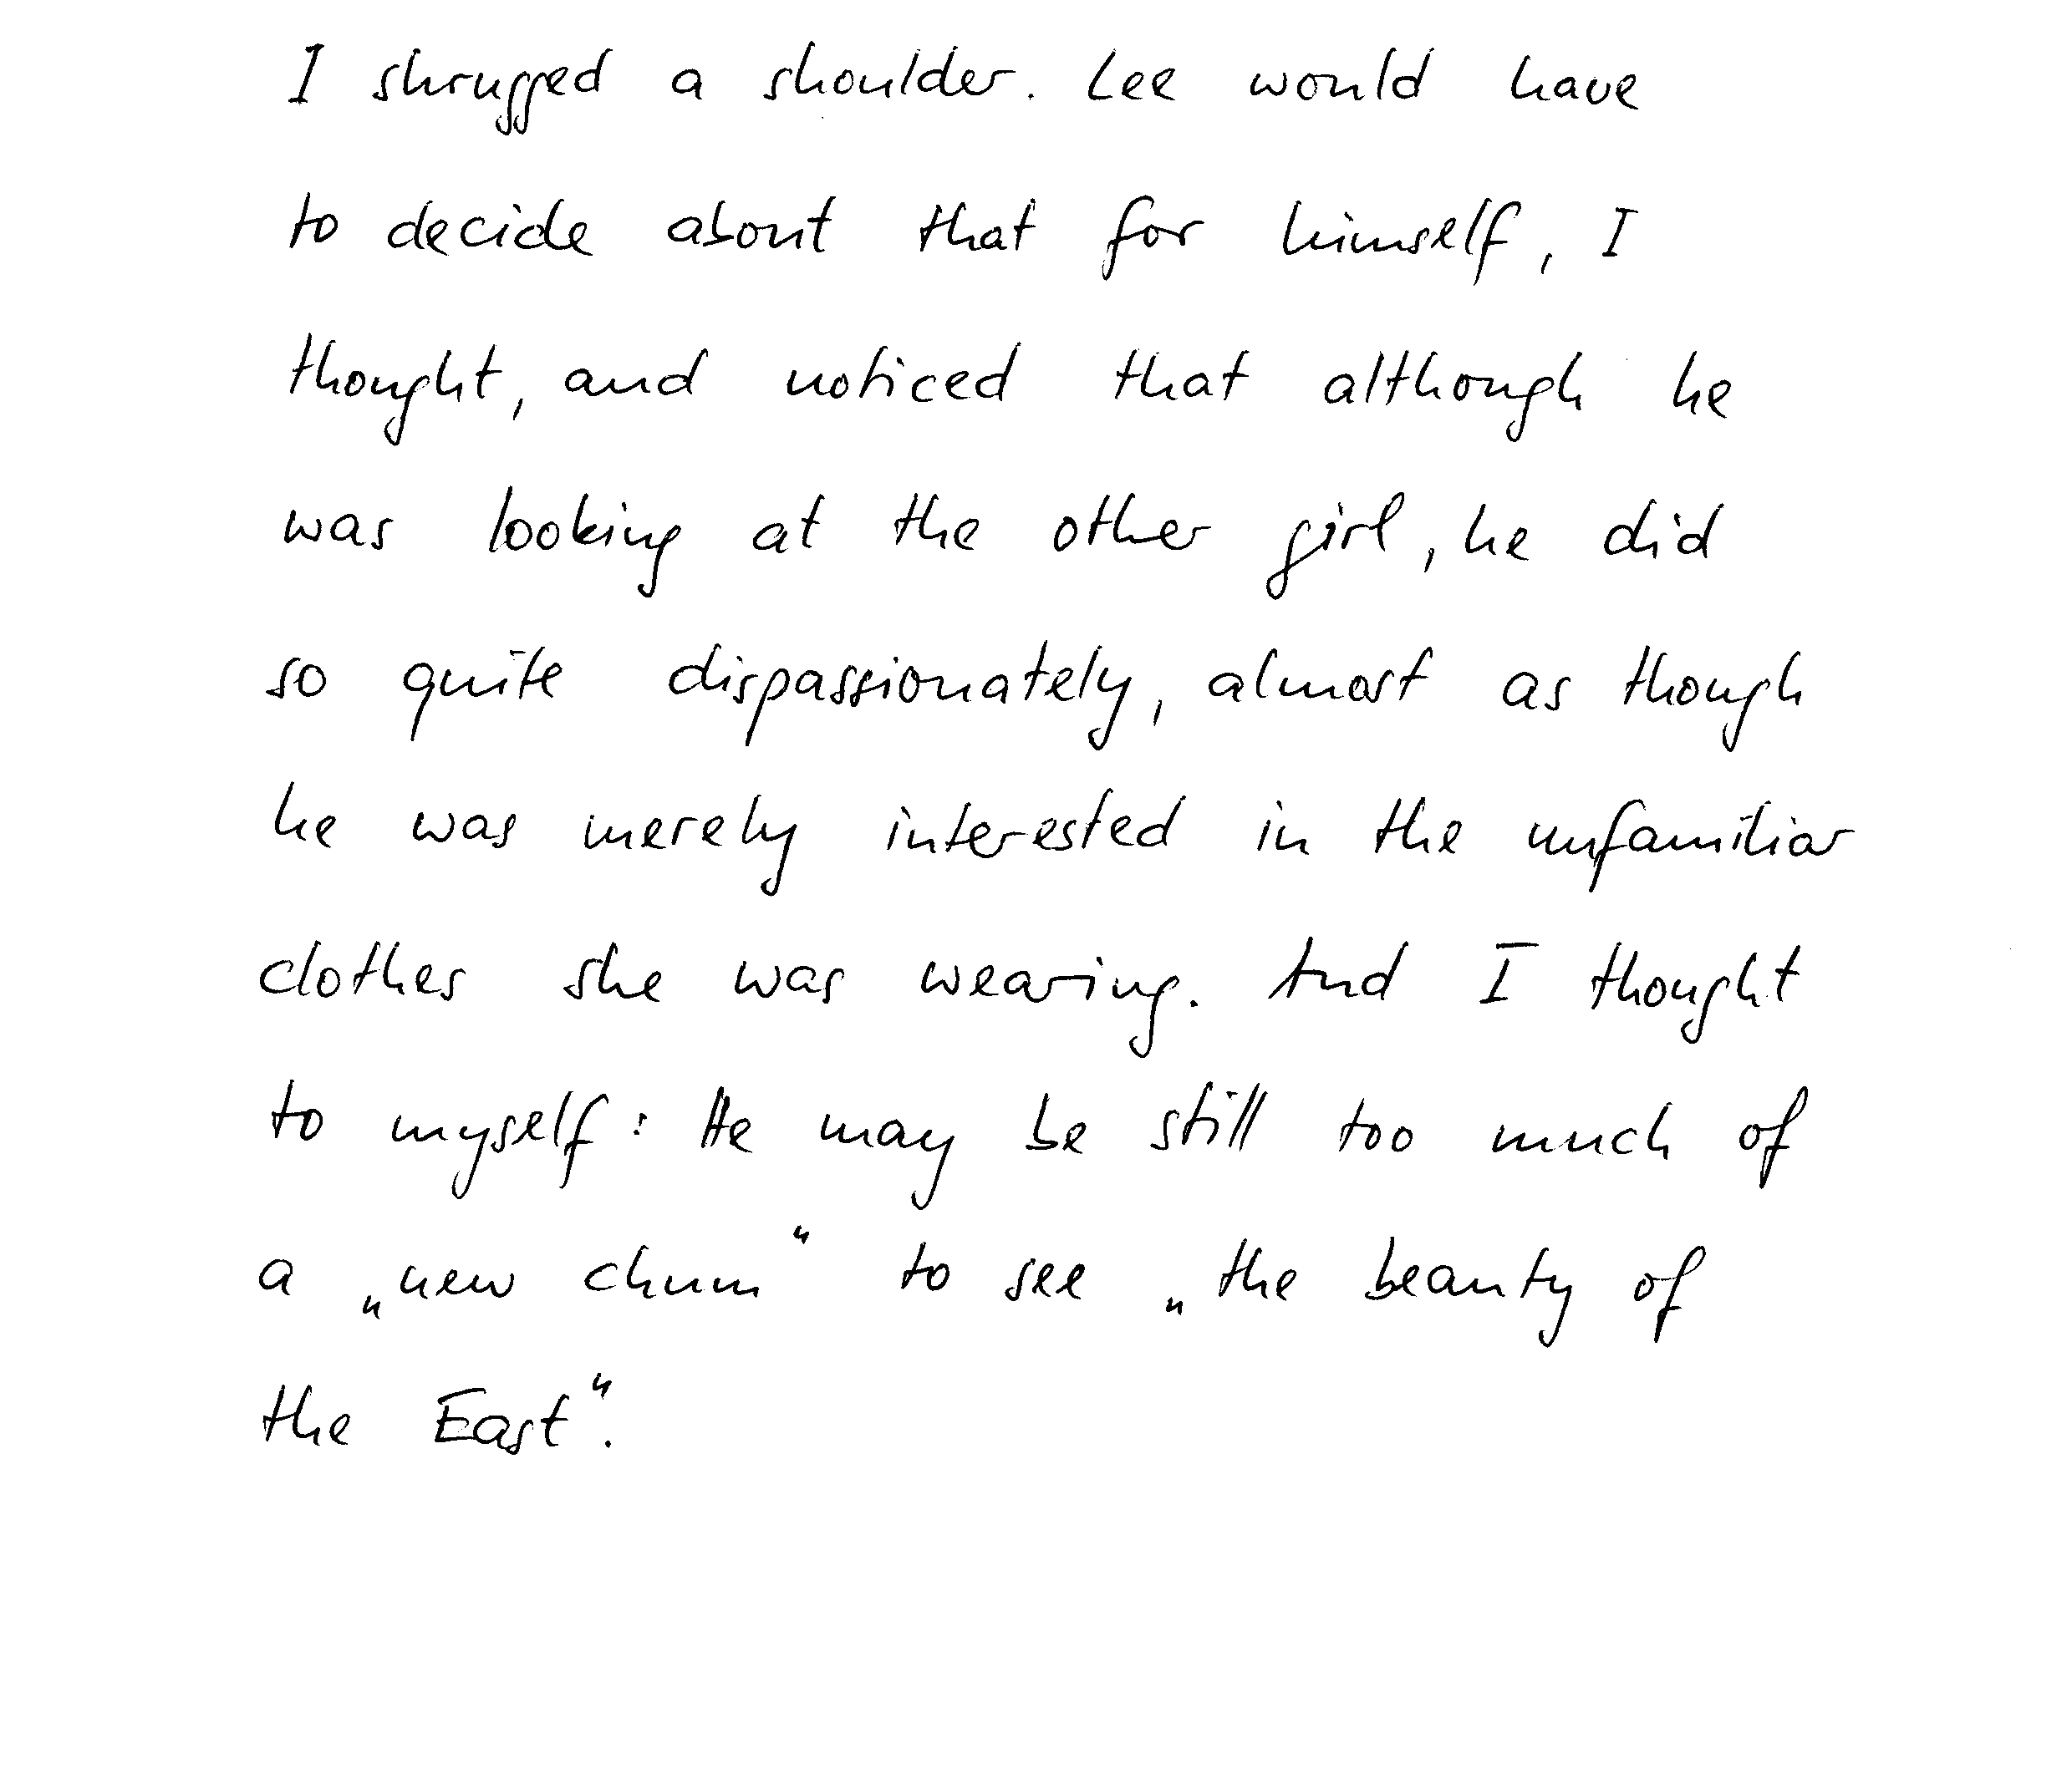 I shrugged a shoulder. Lee would have
to decide about that for himself, I
thought, and noticed that although he
was looking at the other girl, he did
so quite dispassionately, almost as though
he was merely interested in the unfamiliar
clothes she was wearing. And I thought
to myself: He may be still too much of
a „new chum“ to see „the beauty of
the East“.